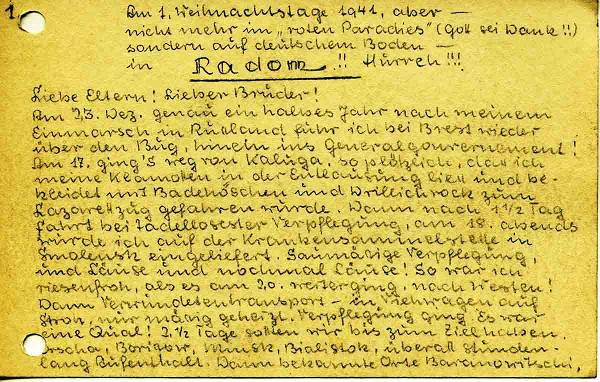 1
Am 1. Weihnachtstage 1941, aber —
nicht mehr im „roten Paradies" (Gott sei Dank!!)
sondern auf deutschem Boden —
in Radom!! Hurreh!!!
Liebe Eltern! Lieber Brüder!
Am 23. Dez. genau ein halbes Jahr nach meinem
Einmarsch in Rußland fuhr ich bei Brest wieder
über den Bug, hinein ins Generalgouvernement!
Am 17. ging's weg von Kaluga, so plötzlich, daß ich
meine Klamotten in der Entlausung ließ und be-
kleidet mit Badehöschen und Drillichrock zum
Lazarettzug gefahren wurde. Dann nach 1½ Tag
Fahrt bei tadellosester Verpflegung, am 18. abends
wurde ich auf der Krankensammelstelle in
Smolensk eingeliefert. Saumäßige Verpflegung,
und Läuse und nochmal Läuse! So war ich
riesenfroh, als es am 20. weiterging, nach Westen!
Dann Verwundetentransport – in Viehwagen auf
Stroh, nur mäßig geheizt. Verpflegung ging. Es war
eine Qual! 3½ Tage sollten wir bis zum Ziel haben.
Orscha, Borissow, Minsk, Bialistok, überall stunden-
lang Aufenthalt. Dann bekannte Orte Baranowitschi,